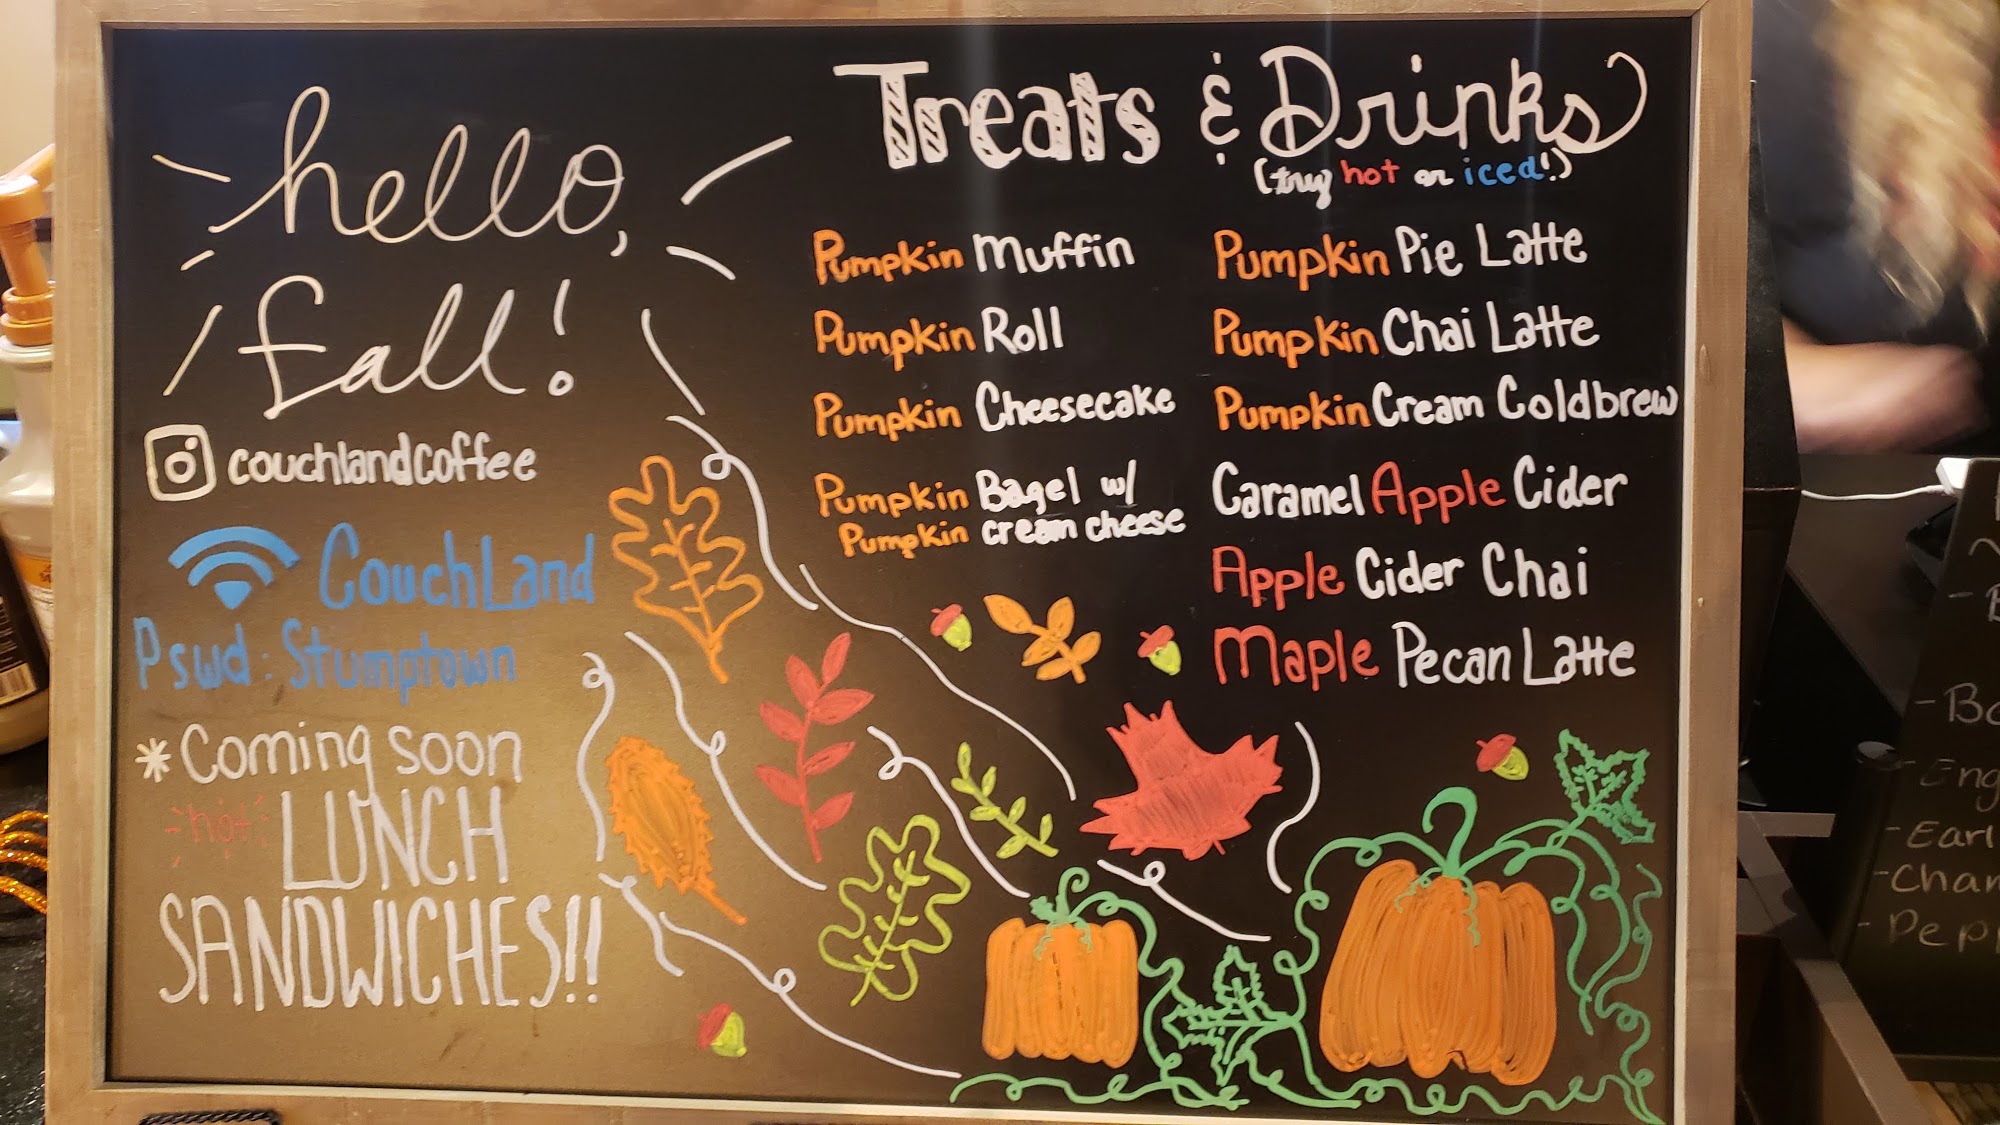 hello,
fall!
couchlandcoffee
CouchLand
Pswd: Stumptown
*Coming soon
hot LUNCH
SANDWICHES!!
Treats & Drinks
(try hot or iced!)
Pumpkin Muffin
Pumpkin Roll
Pumpkin Cheesecake
Pumpkin Bagel w/
Pumpkin cream cheese
Pumpkin Pie Latte
Pumpkin Chai Latte
Pumpkin Cream Coldbrew
Caramel Apple Cider
Apple Cider Chai
Maple Pecan Latte
- Eng
- Earl
- Cham
- Pepp